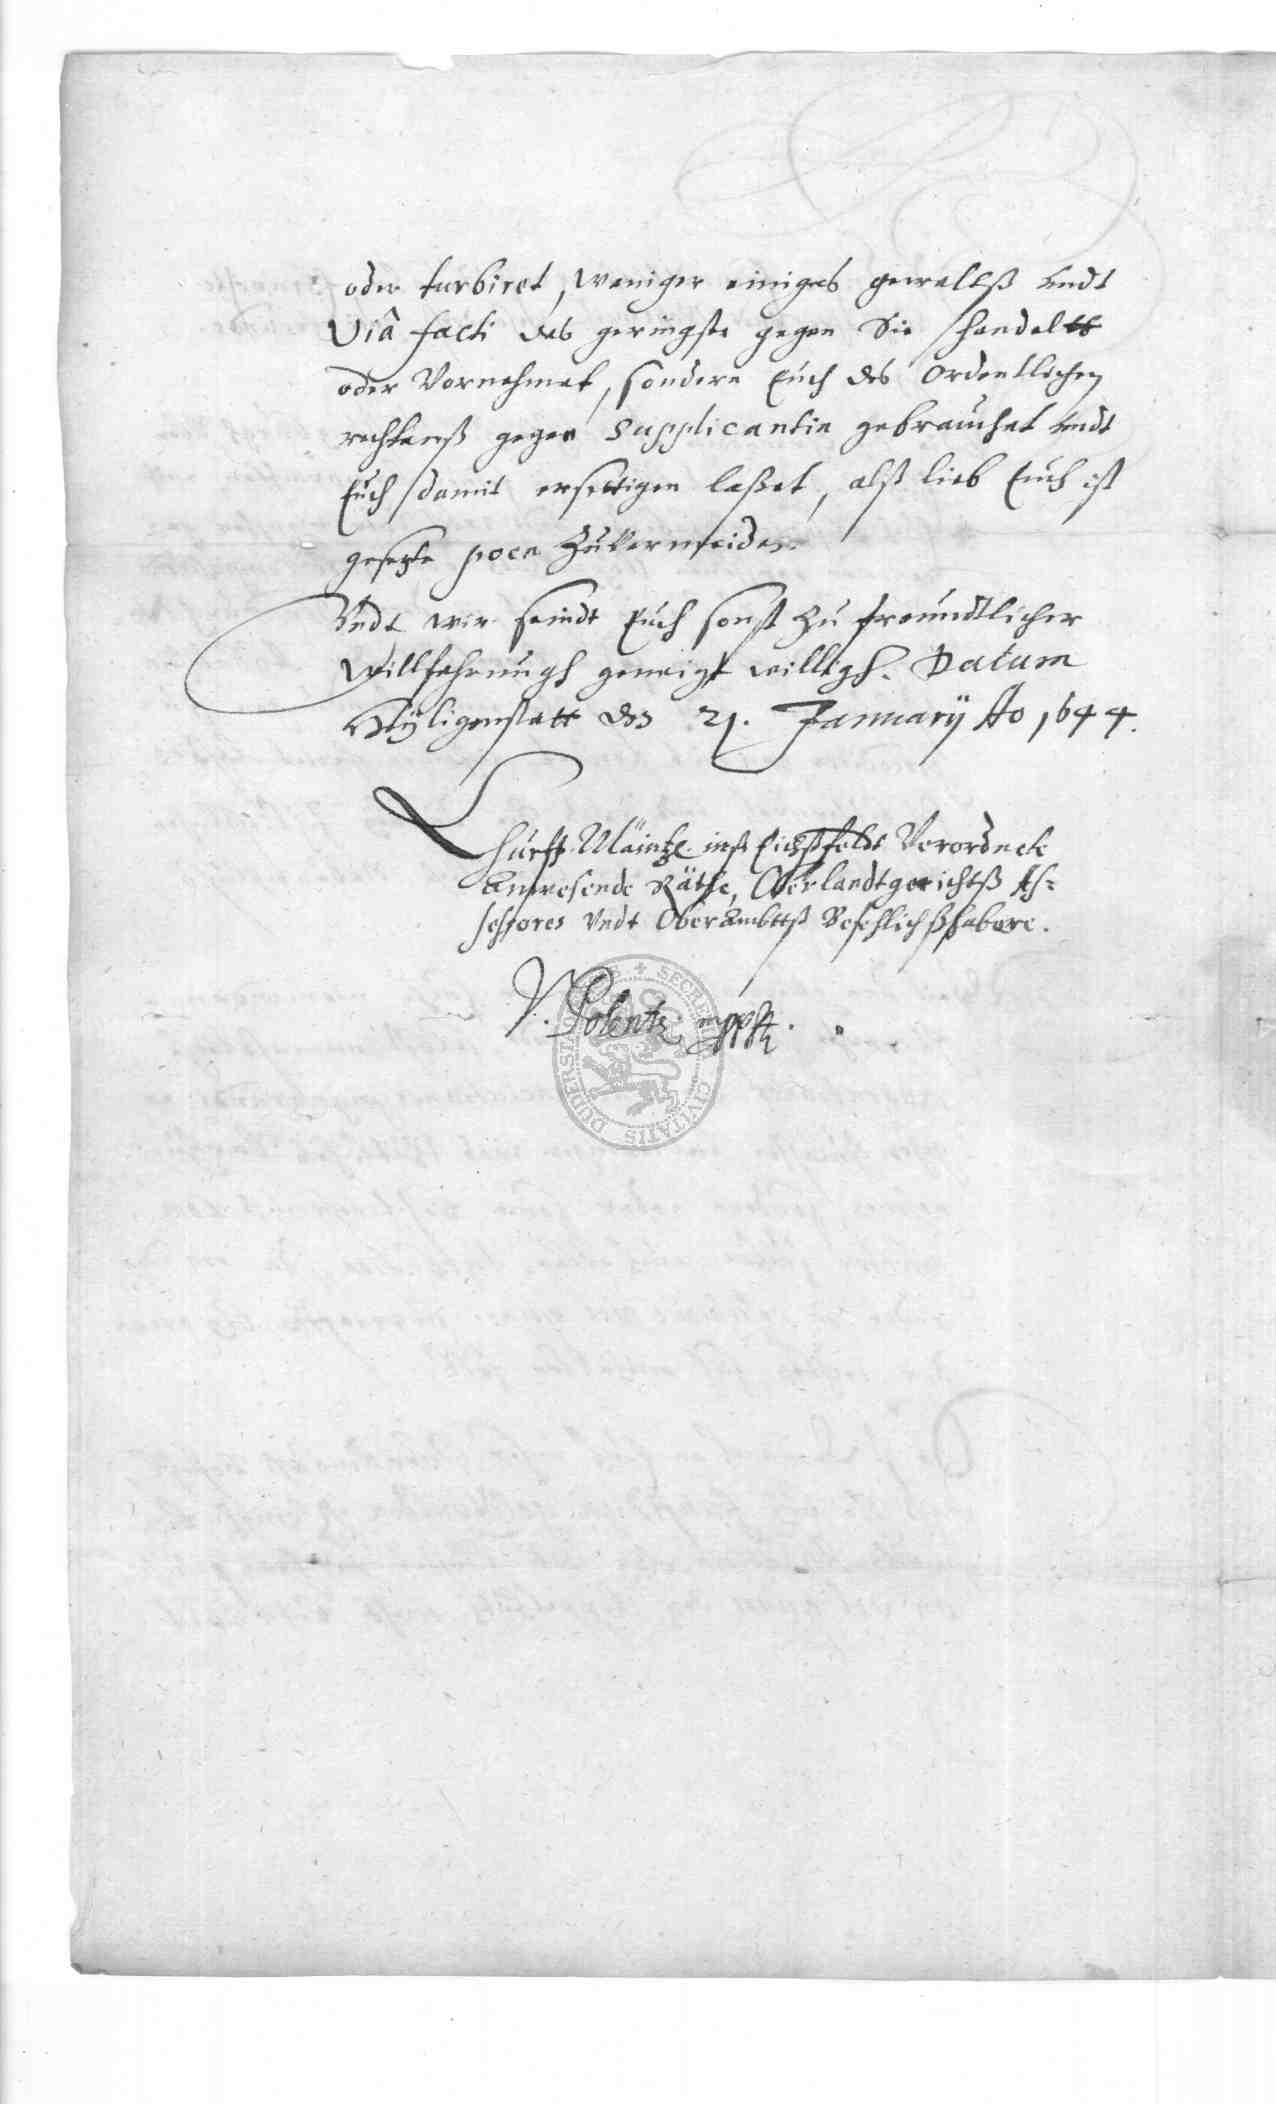 oder turbiret, weniger einiges gewaltß undt
Viâ facti das geringste gegen Sie handeltt
oder Vornehmet, sondern Euch des Ordentlichen
rechtenß gegen Supplicantin gebrauchet undt
Euch damit ersettigen laßet, alß lieb Euch ist
gesezte poen Zuvermeiden.
Undt wir seindt Euch sonst Zu freundtlicher
willfahrungh geneigt willigh. Datum
Heyligenstatt den 21. Januarÿ Ao 1644.
Churff. Mäintz. inß Eichßfeldt Verordnete
Anwesende Räthe, Oberlandtgerichtß As=
sessores Undt Oberambttß Befehlichßhabere.
V. Polentz mppr.
SECRETUM CIVITATIS DUDERSTAD